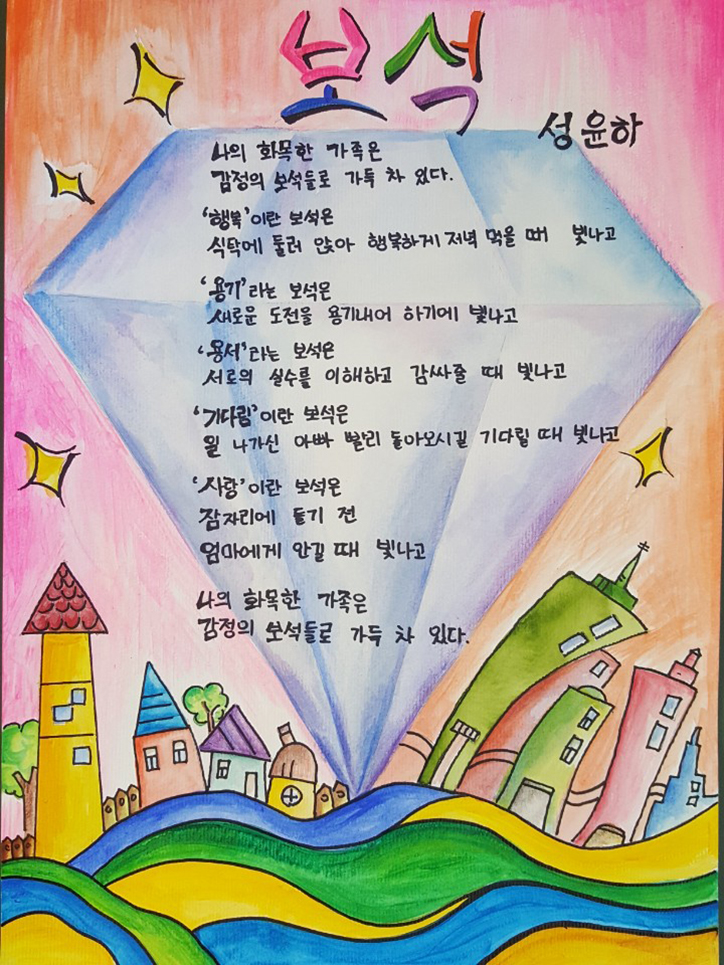 보석
성윤하
나의 화목한 가족은
감정의 보석들로 가득 차 있다.
'행복'이란 보석은
식탁에 둘러 앉아 행복하게 저녁 먹을 때 빛나고
'용기'라는 보석은
새로운 도전을 용기내어 하기에 빛나고
'용서'라는 보석은
서로의 실수를 이해하고 감싸줄 때 빛나고
'기다림'이란 보석은
일 나가신 아빠 빨리 돌아오시길 기다릴 때 빛나고
'사랑'이란 보석은
잠자리에 들기 전
엄마에게 안길 때 빛나고
나의 화목한 가족은
감정의 보석들로 가득 차 있다.